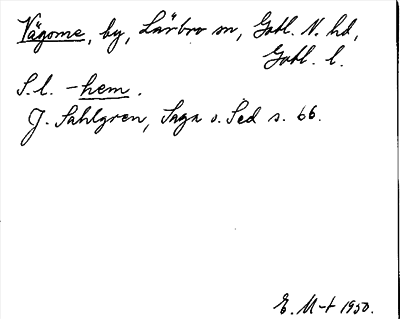 Vägome, by, Lärbro sn, Gotl. N. hd,
Gotl. l.
S.l. -hem.
J. Sahlgren, Saga o. Sed s. 66.
E. M-t 1950.